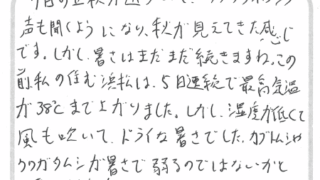 声も聞くようになり、秋が見えてきた感じ
です。しかし暑さはまだまだ続きますね。この
前私の住む浜松は、5日連続で最高気温
が38℃まで上がりました。しかし、湿度が低くて
風も吹いて、ドライな暑さでした。カブトムシや
クワガタムシが暑さで弱るのではないかと